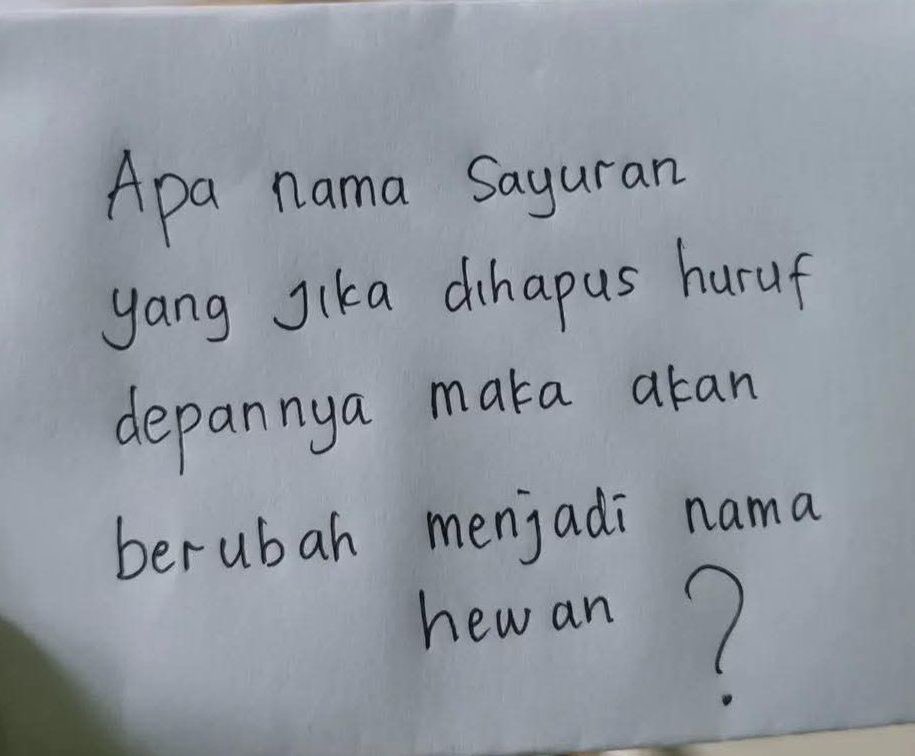 Apa nama Sayuran
yang jika dihapus huruf
depannya maka akan
berubah menjadi nama
hewan ?